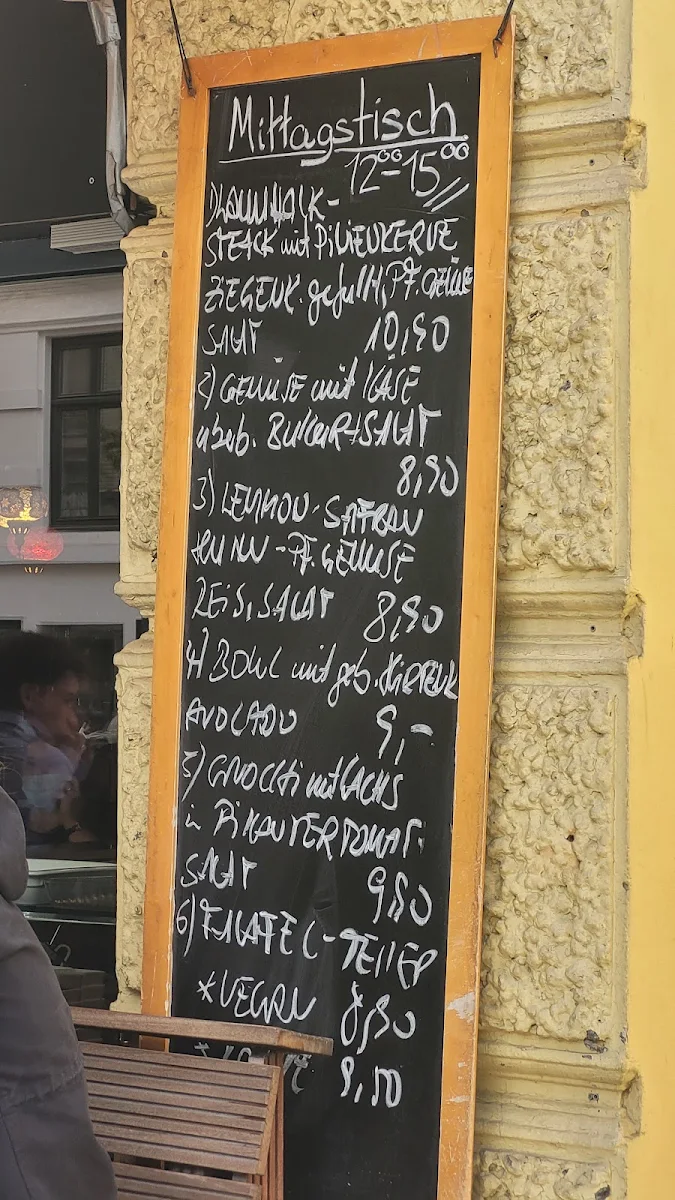 Mittagstisch
12⁰⁰-15⁰⁰
1)
STEACK mit PINIENKERNE
ZIEGENK. gefüllt, PF. GEMÜSE
SALAT 10,90
2) GEMÜSE mit KÄSE
überb. BULGUR + SALAT
8,90
3) LEMMON-SAFRAN
HUHN - PF. GEMÜSE
REIS, SALAT 8,90
4) BOWL mit geb.
AVOCADO 9,-
5) GNOCCHI mit LACHS
in PIKANTER TOMAT.
SALAT 9,80
6) FALAFEL - TELLER
*VEGAN 8,90
9,50